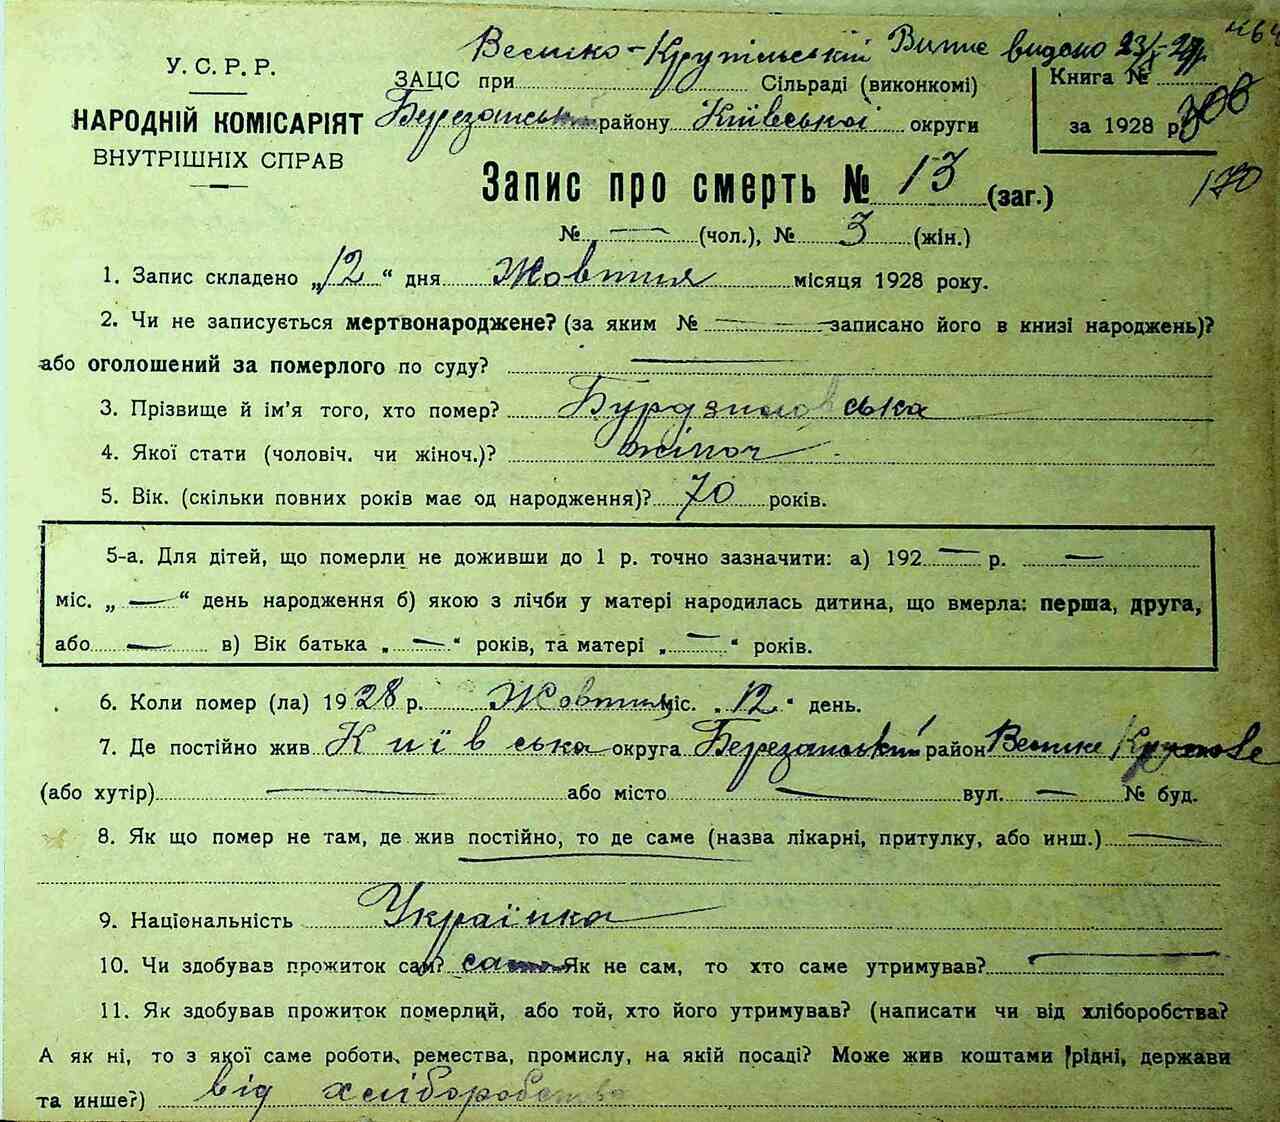 Велико-Крупільській Випис видано 23/I-29р.
У. С. Р. Р.
ЗАЦС при Сільраді (виконкомі)
Книга №
НАРОДНІЙ КОМІСАРІЯТ
Березанськ району Київської округи
за 1928 р.
ВНУТРІШНІХ СПРАВ
Запис про смерть № 13 (заг.)
170
№ — (чол.), № 3 (жін.)
1. Запис складено „12" дня Жовтня місяця 1928 року.
2. Чи не записується мертвонароджене? (за яким № — записано його в книзі народжень)?
або оголошений за померлого по суду? —
3. Прізвище й ім'я того, хто помер?
4. Якої стати (чоловіч. чи жіноч.)? жіноч
5. Вік. (скільки повних років має од народження)? 70 років.
5-а. Для дітей, що померли не доживши до 1 р. точно зазначити: а) 192 — р. —
міс. „ — " день народження б) якою з лічби у матері народилась дитина, що вмерла: перша, друга,
або — в) Вік батька „ — " років, та матері „ — " років.
6. Коли помер (ла) 1928 р. Жовтня міс. „12" день.
7. Де постійно жив Київська округа Березанський район Велике Крупове
(або хутір) — або місто — вул. — № буд.
8. Як що помер не там, де жив постійно, то де саме (назва лікарні, притулку, або инш.) —
9. Національність Українка
10. Чи здобував прожиток сам? сама Як не сам, то хто саме утримував? —
11. Як здобував прожиток померлий, або той, хто його утримував? (написати чи від хліборобства?
А як ні, то з якої саме роботи, ремества, промислу, на якій посаді? Може жив коштами рідні, держави
та инше?) від хліборобства